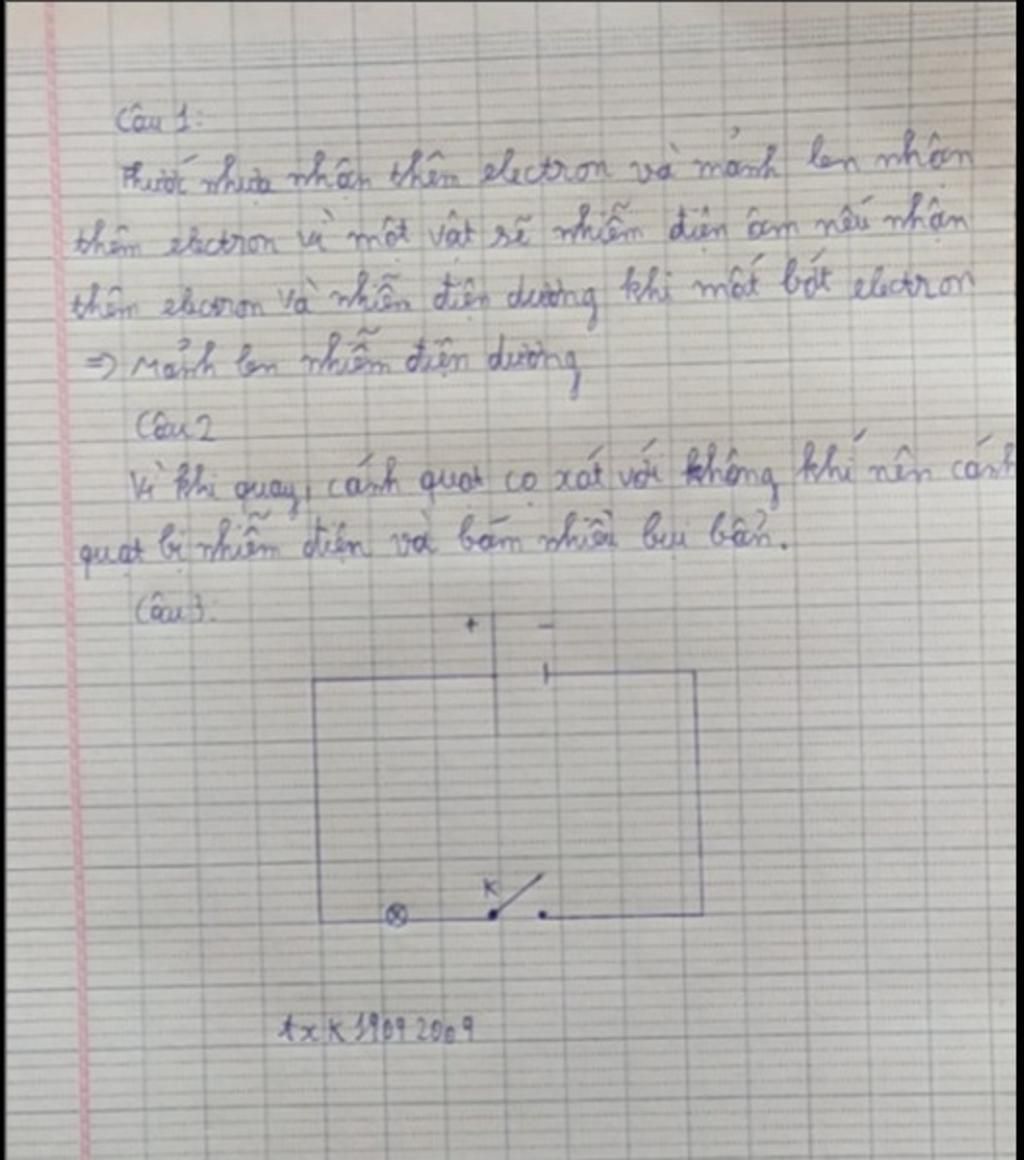 Câu 1:
Thước nhựa nhận thêm electron và mảnh len nhận
thêm electron vì một vật sẽ nhiễm điện âm nếu nhận
thêm electron và nhiễm điện dương khi mất bớt electron
=> Mảnh len nhiễm điện dương
Câu 2
Vì khi quay, cánh quạt cọ xát với không khí nên cánh
quạt bị nhiễm điện và bám nhiều bụi bẩn.
Câu 3:
+ -
K
txk19092009